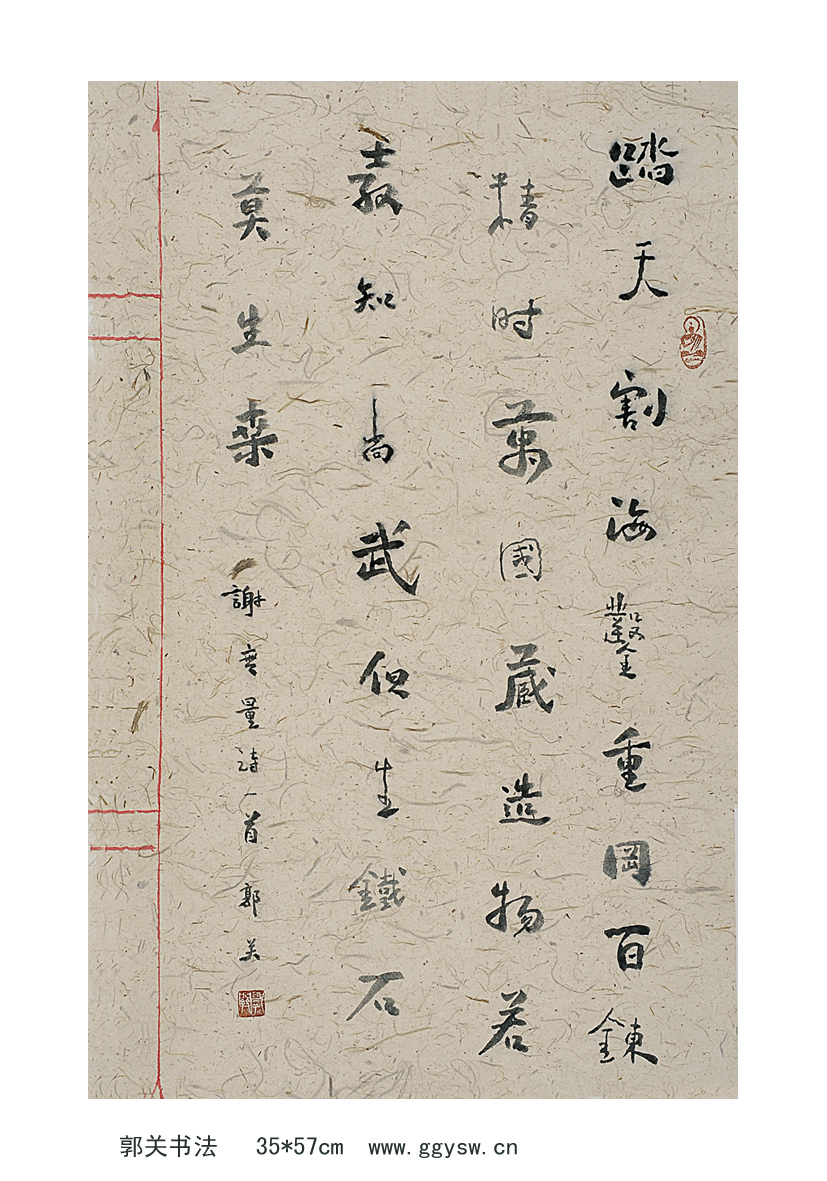 踏天割海鑿重岡百鍊
精时萬國藏造物若
教知尚武但生鐵石
莫生桒
謝無量詩一首 郭关
郭关书法 35*57cm www.ggysw.cn